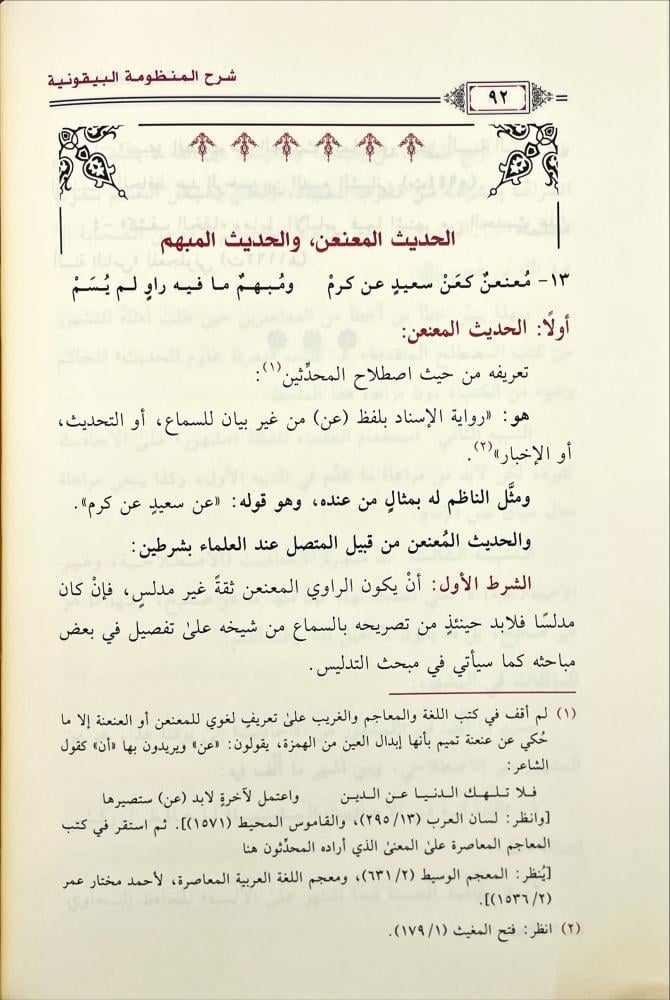 شرح المنظومة البيقونية
٩٢
الحديث المعنعن، والحديث المبهم
١٣- مُعنعنٌ كعَنْ سعيدٍ عن كرمْ ومُبهمٌ ما فيه راوٍ لم يُسَمْ
أولًا: الحديث المعنعن:
تعريفه من حيث اصطلاح المحدِّثين(١):
هو: «رواية الإسناد بلفظ (عن) من غير بيان للسماع، أو التحديث،
أو الإخبار»(٢).
ومثَّل الناظم له بمثالٍ من عنده، وهو قوله: «عن سعيدٍ عن كرم».
والحديث المُعنعن من قبيل المتصل عند العلماء بشرطين:
الشرط الأول: أنْ يكون الراوي المعنعن ثقةً غير مدلسٍ، فإنْ كان
مدلسًا فلابد حينئذٍ من تصريحه بالسماع من شيخه علىٰ تفصيل في بعض
مباحثه كما سيأتي في مبحث التدليس.
(١) لم أقف في كتب اللغة والمعاجم والغريب علىٰ تعريفٍ لغوي للمعنعن أو العنعنة إلا ما
حُكي عن عنعنة تميم بأنها إبدال العين من الهمزة، يقولون: «عن» ويريدون بها «أن» كقول
الشاعر:
فلا تلهك الدنيا عن الدين واعتمل لآخرةٍ لابد (عن) ستصيرها
[وانظر: لسان العرب (٢٩٥/١٣)، والقاموس المحيط (١٥٧١)]. ثم استقر في كتب
المعاجم المعاصرة علىٰ المعنىٰ الذي أراده المحدِّثون هنا
[يُنظر: المعجم الوسيط (٦٣١/٢)، ومعجم اللغة العربية المعاصرة، لأحمد مختار عمر
(١٥٣٦/٢)].
(٢) انظر: فتح المغيث (١٧٩/١).